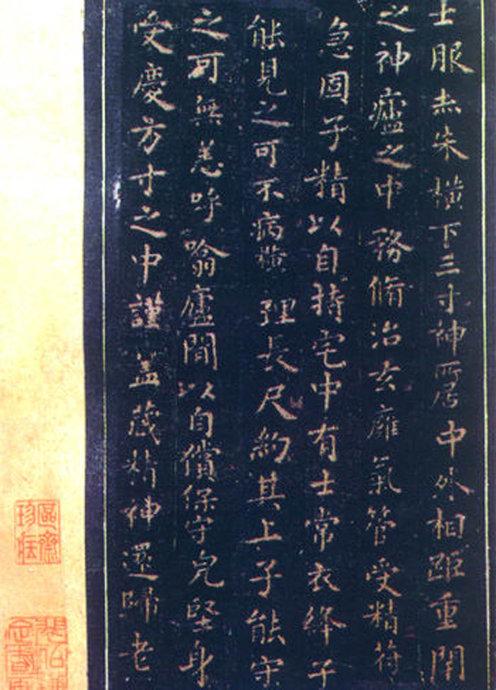 士服赤朱橫下三寸神所居中外相距重閇
之神廬之中務脩治玄廱氣管受精符
急固子精以自持宅中有士常衣絳子
能見之可不病橫理長尺約其上子能守
之可無恙呼噏廬間以自償保守完堅身
受慶方寸之中謹蓋藏精神還歸老